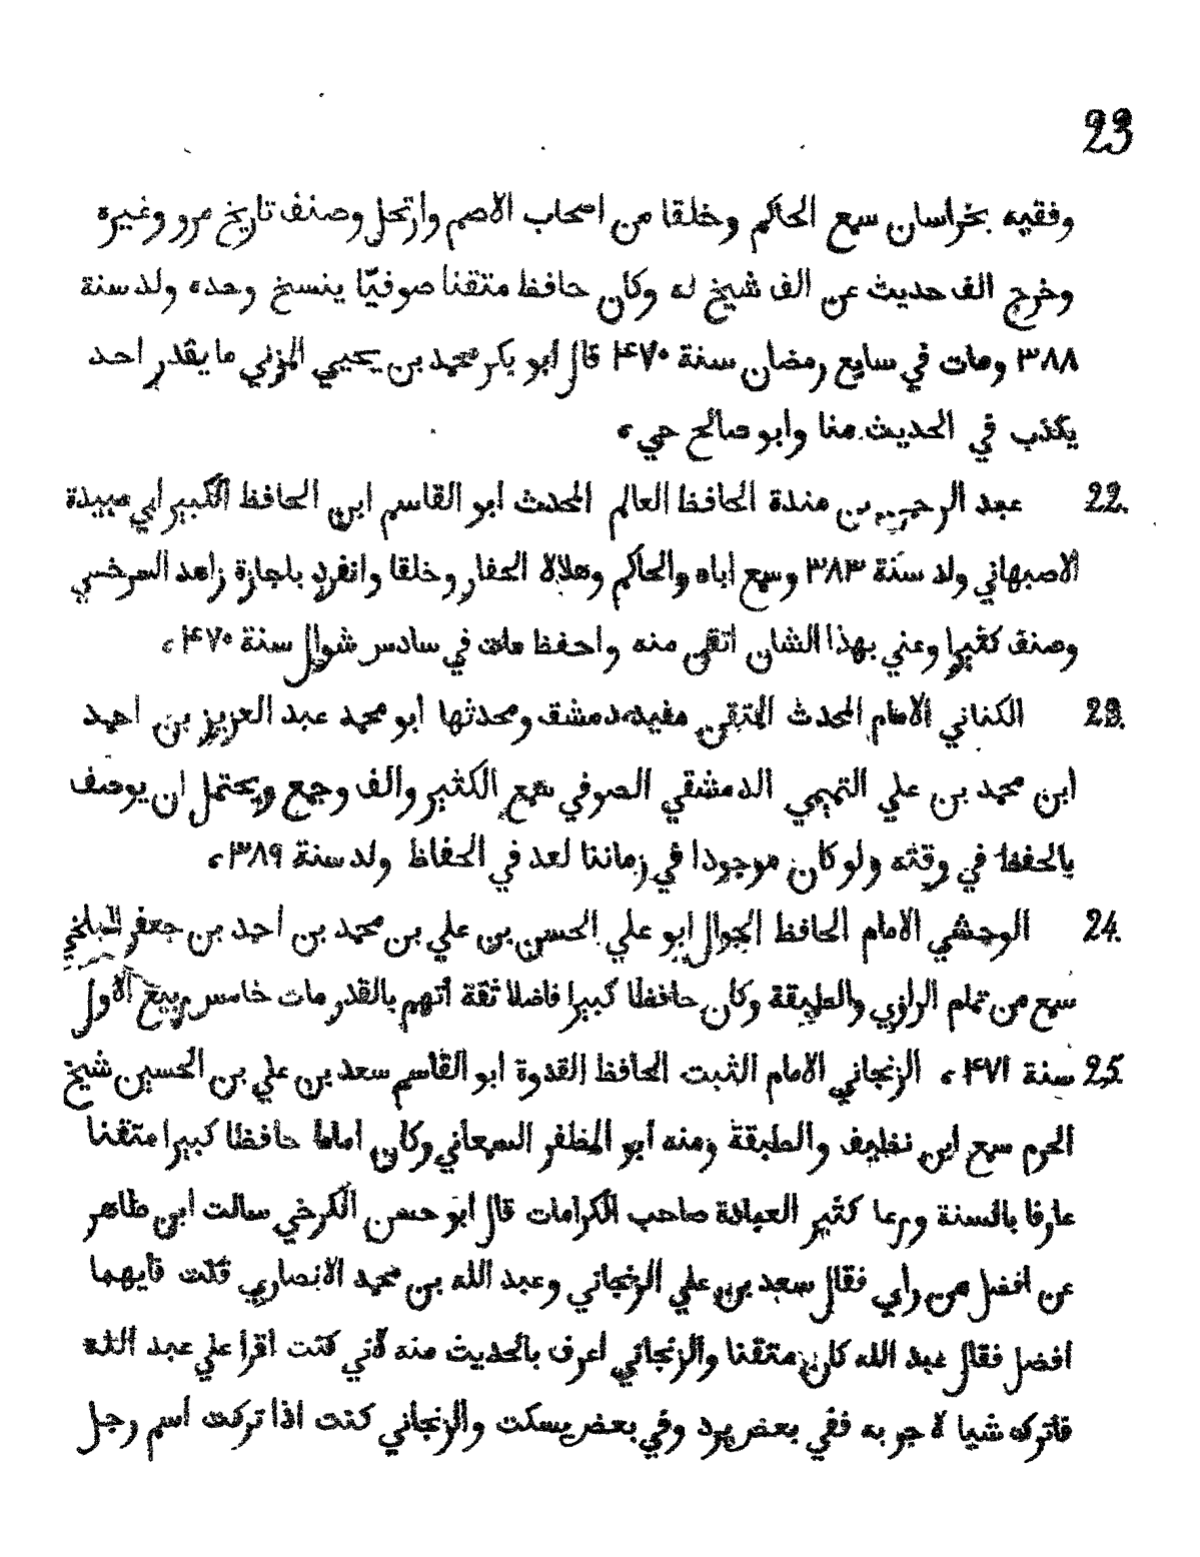 23
وفقيه بخراسان سمع الحاكم وخلقا من اصحاب الاصم وارتحل وصنف تاريخ مرو وغيره
وخرج الف حديث عن الف شيخ له وكان حافظا متقنا صوفيّا ينسخ وحده ولد سنة
٣٨٨ ومات في سابع رمضان سنة ۴٧٠ قال ابو بكر محمد بن يحيي المزني ما يقدر احد
يكذب في الحديث منا وابو صالح حي،
22. عبد الرحمن بن مندة الحافظ العالم المحدث ابو القاسم ابن الحافظ الكبير ابي عبيدة
الاصبهاني ولد سنة ٣٨٣ وسمع اباه والحاكم وهلالا الحفار وخلقا وانفرد باجازة زاهد السرخسي
وصنف كثيرا وعني بهذا الشان اتقي منه واحفظ مات في سادس شوال سنة ۴٧٠،
23. الكناني الامام المحدث المتقن مفيد دمشق ومحدثها ابو محمد عبد العزيز بن احمد
ابن محمد بن علي التميمي الدمشقي الصوفي سمع الكثير والف وجمع ويحتمل ان يوصف
بالحفظ في وقته ولو كان موجودا في زماننا لعد في الحفاظ ولد سنة ٣٨٩،
24. الوحشي الامام الحافظ الجوال ابو علي الحسن بن علي بن محمد بن احمد بن جعفر البلخي
سمع من تمام الرازي والطبقة وكان حافظا كبيرا فاضلا ثقة أتهم بالقدر مات خامس ربيع الاول
سنة ۴٧١، 25. الزنجاني الامام الثبت الحافظ القدوة ابو القاسم سعد بن علي بن الحسين شيخ
الحرم سمع ابن نظيف والطبقة ومنه أبو المظفر السمعاني وكان اماما حافظا كبيرا متقنا
عارفا بالسنة ورعا كثير العبادة صاحب الكرامات قال ابو حسن الكرخي سالت ابن طاهر
عن افضل من رأي فقال سعد بن علي الزنجاني وعبد الله بن محمد الانصاري قلت فايهما
افضل فقال عبد الله كان متقنا والزنجاني اعرف بالحديث منه لأني كنت اقرا علي عبد الله
فاترك شيا لا جربه ففي بعض يرد وفي بعض يسكت والزنجاني كنت اذا تركت اسم رجل